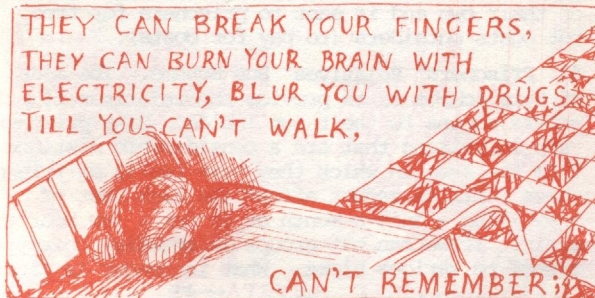 THEY CAN BREAK YOUR FINGERS,
THEY CAN BURN YOUR BRAIN WITH
ELECTRICITY, BLUR YOU WITH DRUGS
TILL YOU CAN'T WALK,
CAN'T REMEMBER;